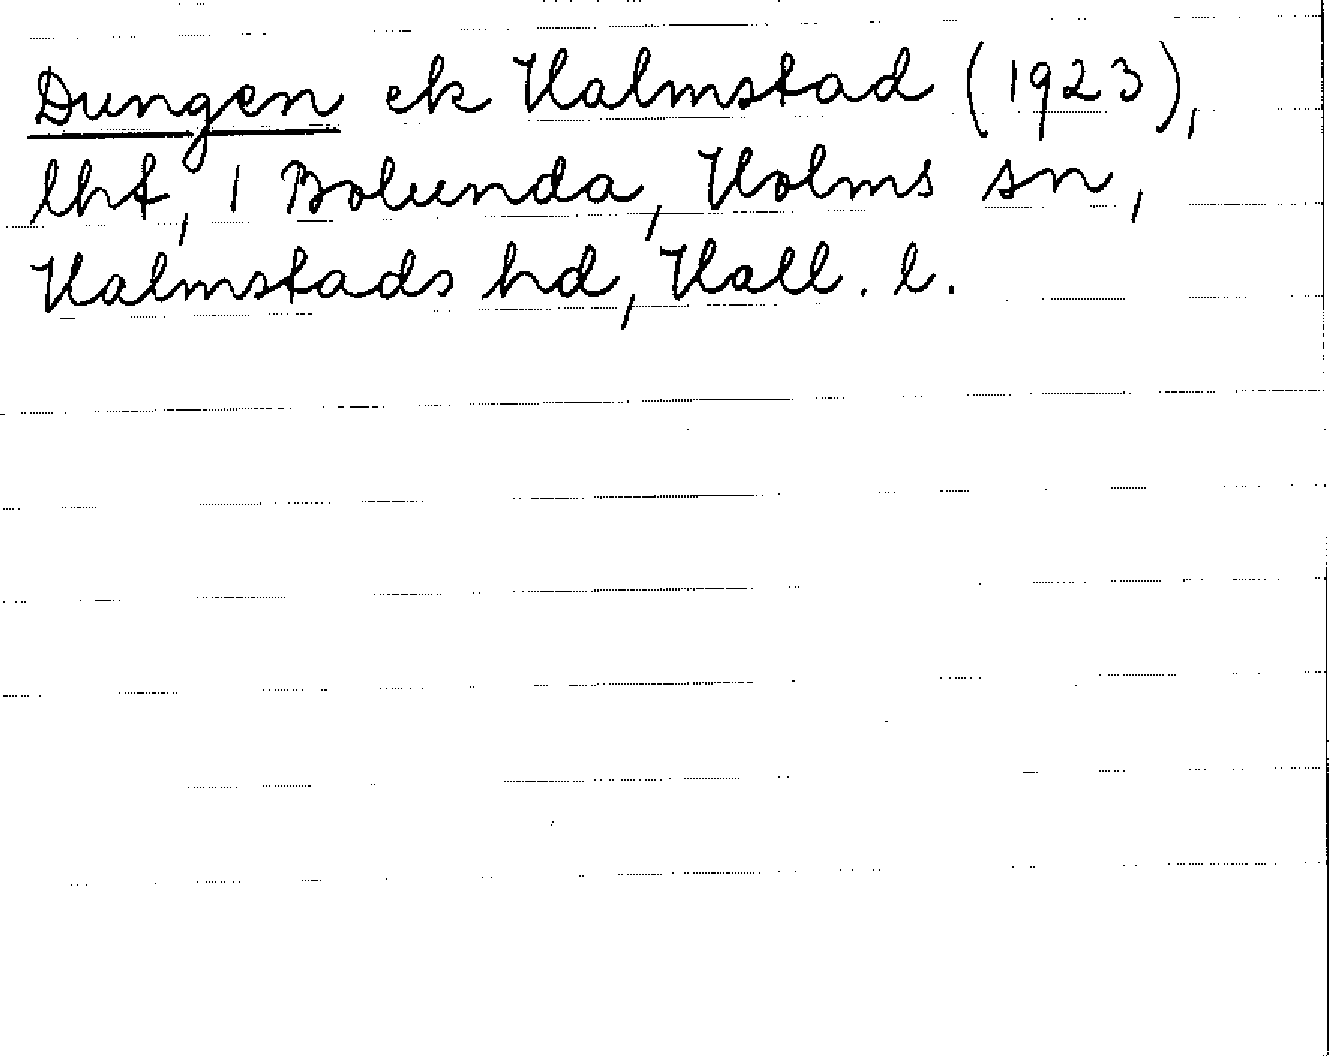 Dungen ek Halmstad (1923),
lht, 1 Bolunda, Holms sn,
Halmstads hd, Hall. l.